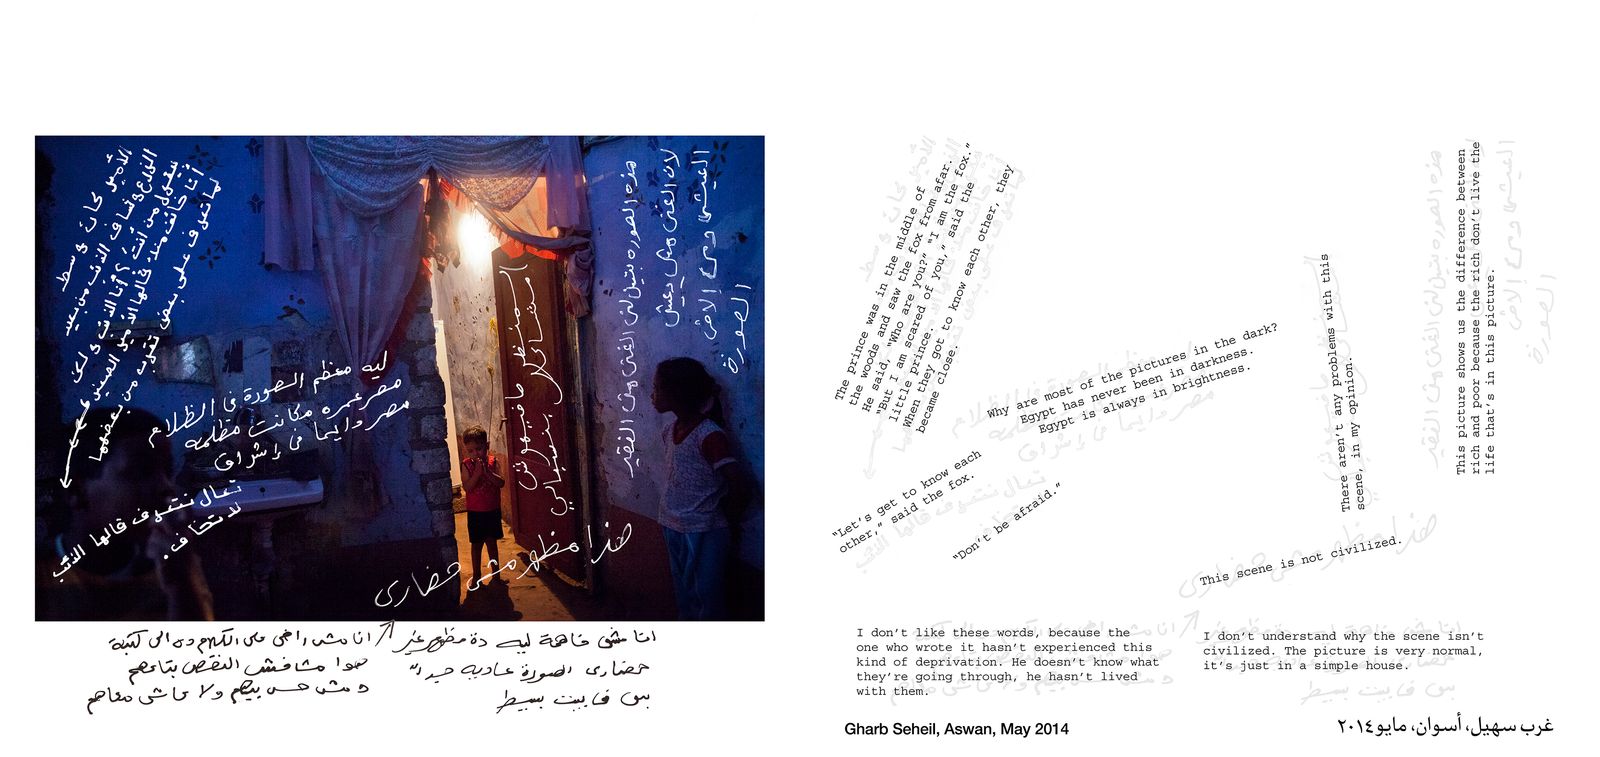 الأمير كان في وسط
الزرع وشاف الذئب من بعيد
بيقول من أنت؟ أنا الذئب ولكن
أنا خائف منك قالها الأمير الصغير
لما اتعرف على بعض تقرب من بعضهما
ليه معظم الصورة في الظلام
مصر عمره مكانت مظلمه
مصر دايما في إشراق
تعال نتعرف قالها الذئب
لا تخاف.
المنظر مافيهوش
مشاكل بنسبالي
هذه الصوره بتبين لنا الغنى من الفقير
لان الغنى مش
العيشه دى
الصورة
هذا مظهر مش حضارى
انا مش فاهمة ليه دة مظهر غير
حضارى الصورة عادية جداً
بس فى بيت بسيط
انا مش راضى على الكلام ده الى كتبه
هوا مشافش النقص بتاعهم
مش حس بيهم ولا عاش معاهم
The prince was in the middle of
the woods and saw the fox from afar.
He said, “Who are you?” “I am the fox.”
“But I am scared of you,” said the
little prince.
When they got to know each other, they
became close.
Why are most of the pictures in the dark?
Egypt has never been in darkness.
Egypt is always in brightness.
“Let’s get to know each
other,” said the fox.
“Don’t be afraid.”
There aren’t any problems with this
scene, in my opinion.
This picture shows us the difference between
rich and poor because the rich don’t live the
life that’s in this picture.
This scene is not civilized.
I don’t like these words, because the
one who wrote it hasn’t experienced this
kind of deprivation. He doesn’t know what
they’re going through, he hasn’t lived
with them.
I don’t understand why the scene isn’t
civilized. The picture is very normal,
it’s just in a simple house.
Gharb Seheil, Aswan, May 2014
غرب سهيل، أسوان، مايو ٢٠١٤